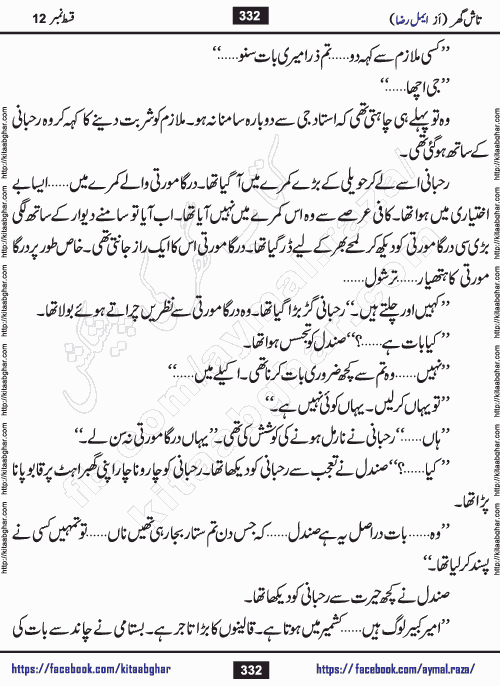 تاش گھر (از ایمل رضا) 332 قسط نمبر 12
’’کسی ملازم سے کہہ دو......تم ذرا میری بات سنو......‘‘
’’جی اچھا......‘‘
وہ تو پہلے ہی چاہتی تھی کہ استاد جی سے دوبارہ سامنا نہ ہو۔ ملازم کو شربت دینے کا کہہ کر وہ رحبانی
کے ساتھ ہو گئی تھی۔
رحبانی اسے لے کر حویلی کے بڑے کمرے میں آ گیا تھا۔ درگا مورتی والے کمرے میں......ایسا بے
اختیاری میں ہوا تھا۔ کافی عرصے سے وہ اس کمرے میں نہیں آیا تھا۔ اب آیا تو سامنے دیوار کے ساتھ لگی
بڑی سی درگا مورتی کو دیکھ کر لمحے بھر کے لیے ڈر گیا تھا۔ درگا مورتی اس کا ایک راز جانتی تھی۔ خاص طور پر درگا
مورتی کا ہتھیار......ترشول......
’’کہیں اور چلتے ہیں۔‘‘ رحبانی گڑبڑا گیا تھا۔ وہ درگا مورتی سے نظریں چراتے ہوئے بولا تھا۔
’’کیا بات ہے......؟‘‘ صندل کو تجسس ہوا تھا۔
’’نہیں......وہ تم سے کچھ ضروری بات کرنا تھی۔ اکیلے میں......‘‘
’’تو یہاں کر لیں۔ یہاں کوئی نہیں ہے۔‘‘
’’ہاں......‘‘ رحبانی نے نارمل ہونے کی کوشش کی تھی۔ ’’یہاں درگا مورتی نہ سن لے۔‘‘
’’کیا......؟‘‘ صندل نے تعجب سے رحبانی کو دیکھا تھا۔ رحبانی کو چارو ناچار اپنی گھبراہٹ پر قابو پانا
پڑا تھا۔
’’وہ......بات دراصل یہ ہے صندل......کہ جس دن تم ستار بجا رہی تھیں ناں......تو تمہیں کسی نے
پسند کر لیا تھا۔‘‘
صندل نے کچھ حیرت سے رحبانی کو دیکھا تھا۔
’’امیر کبیر لوگ ہیں......کشمیر میں ہوتا ہے۔ قالینوں کا بڑا تاجر ہے۔ بستامی نے چاند سے بات کی
https://facebook.com/kitaabghar 332 https://facebook.com/aymal.raza/
http://kitaabghar.com
kitaabghar.com